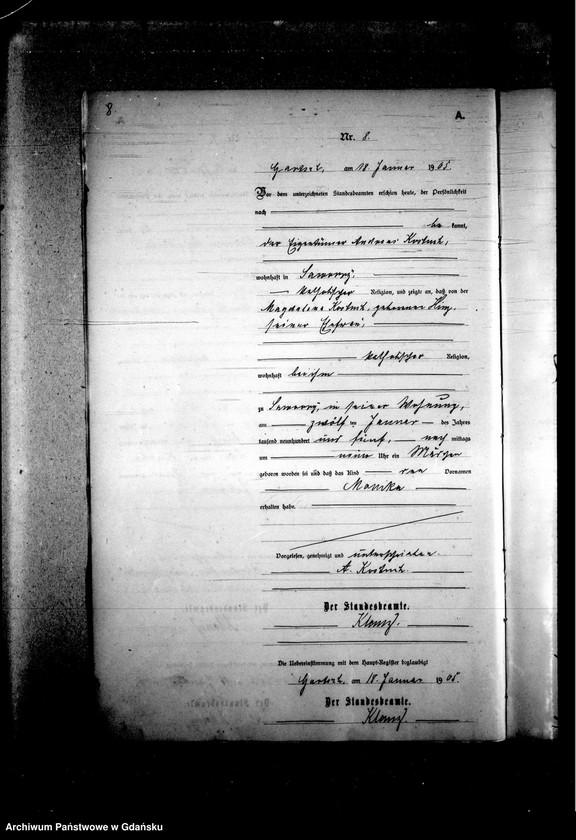 8
A.
Nr. 8.
am 18. Januar 1905.
Vor dem unterzeichneten Standesbeamten erschien heute, der Persönlichkeit
nach
be kannt,
der Eigentümer Andreas
wohnhaft in
katholischer Religion, und zeigte an, daß von der
Magdalena geborenen
seiner Ehefrau,
katholischer Religion,
wohnhaft bei ihm
zu in seiner Wohnung,
am zwölf ten Januar des Jahres
tausend neunhundert und fünf, nach mittags
um neun Uhr ein Mädchen
geboren worden sei und daß das Kind den Vornamen
Monika
erhalten habe.
Vorgelesen, genehmigt und unterschrieben.
A.
Der Standesbeamte.
Die Uebereinstimmung mit dem Haupt-Register beglaubigt
am 18. Januar 1905.
Der Standesbeamte.
Archiwum Państwowe w Gdańsku